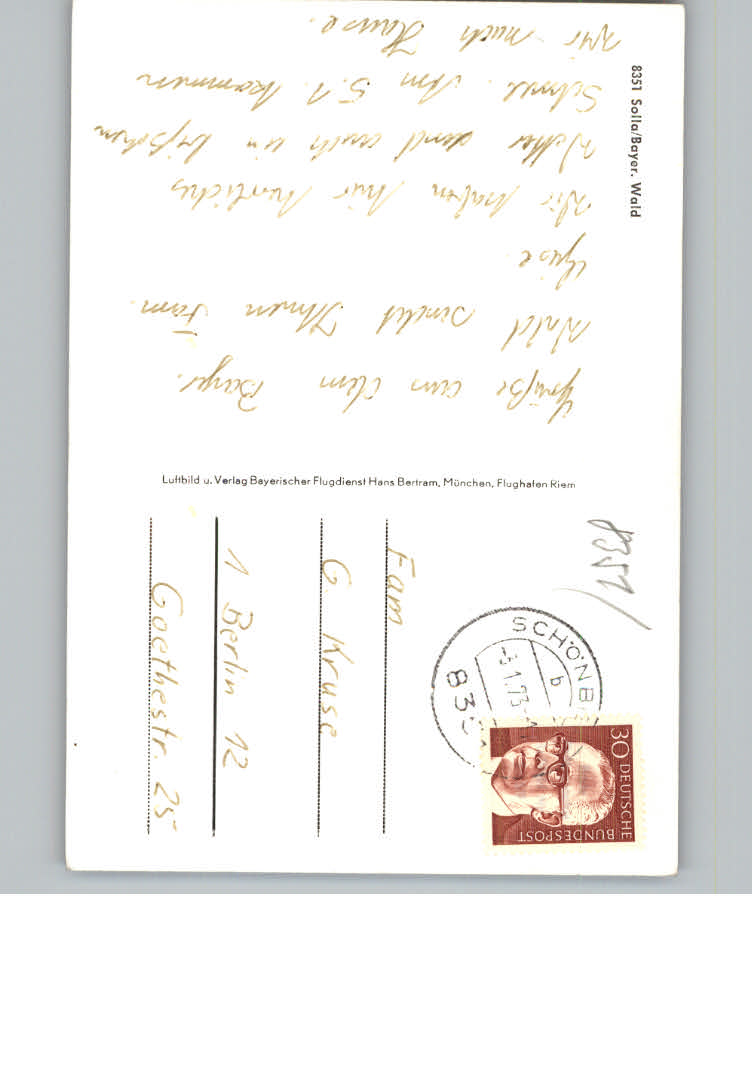 8351 Solla/Bayer. Wald
Grüße aus dem Bayr.
Wald sendet Ihnen Fam.
Wir haben hir herrliches
Wetter und auch ein bißchen
Schnee. Am 5.1. kommen
wir nach Hause.
Luftbild u. Verlag Bayerischer Flugdienst Hans Bertram, München, Flughafen Riem
8351/
SCHÖNB
-3.1.73-
b
835
30 DEUTSCHE
BUNDESPOST
Fam
G Kruse
1 Berlin 12
Goethestr. 25